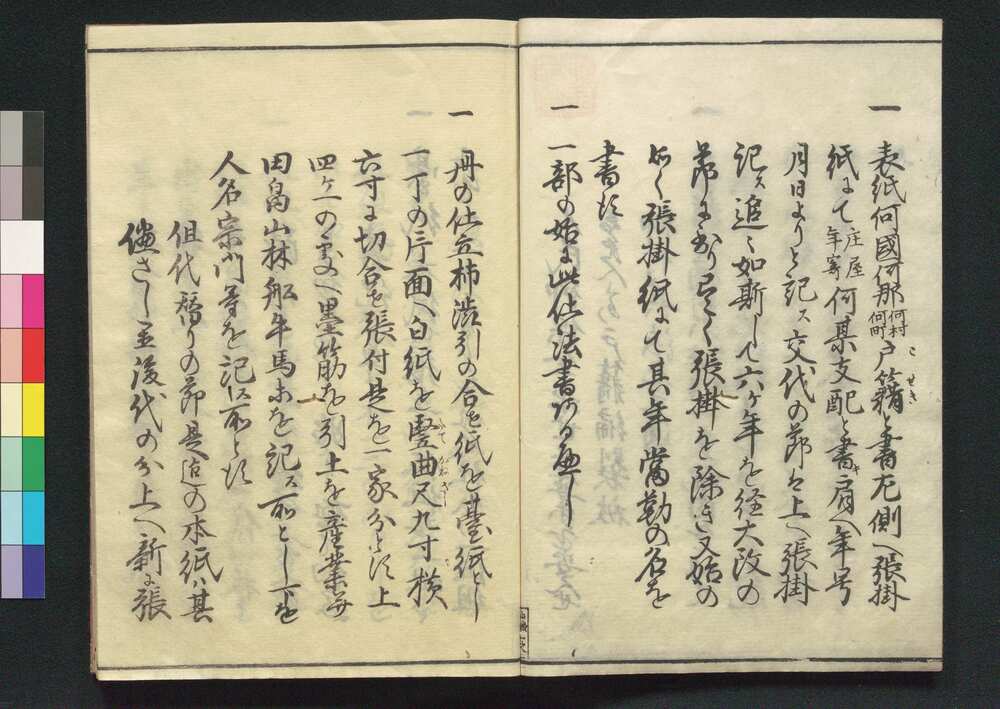 一 表紙何國何郡何村何町戸籍と書左側へ張掛
こ せき
紙にて庄屋年寄何某支配と書キ肩へ年号
月日よりと記ス交代の節は上へ張掛
記ス追々如斯して六ヶ年を経大改の
節に至り尽く張掛を除き又始の
如く張掛紙にて其年當勤の名を
書す
一 一部の始に此仕法書 べし
一 冊の仕立柿渋引の合せ紙を臺紙とし
一丁の片面へ白紙を竪曲尺九寸横
六寸に切合せ張付是を一家分とす上
四ヶ一の 墨筋を引上を産業
田畠山林舩牛馬 を記ス所とし下を
人名宗門等を記ス所とす
但代替りの節是迄の本紙は其
儘さし置後代の分上へ新に張